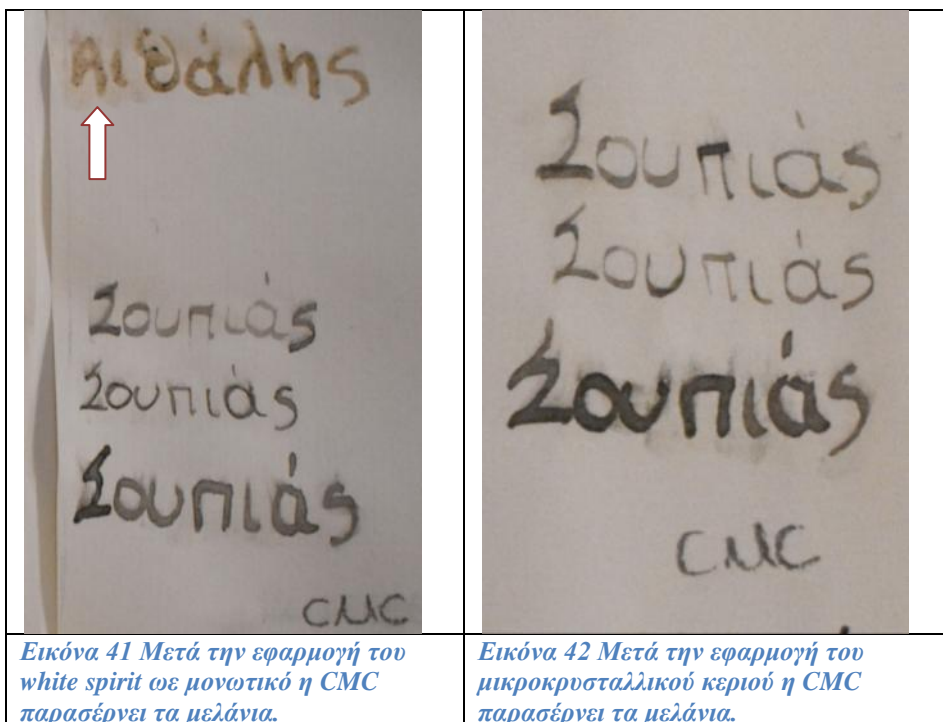 Αιθάλης
Σουπιάς
Σουπιάς
Σουπιάς
CMC
Εικόνα 41 Μετά την εφαρμογή του
white spirit ωε μονωτικό η CMC
παρασέρνει τα μελάνια.
Σουπιάς
Σουπιάς
Σουπιάς
CMC
Εικόνα 42 Μετά την εφαρμογή του
μικροκρυσταλλικού κεριού η CMC
παρασέρνει τα μελάνια.